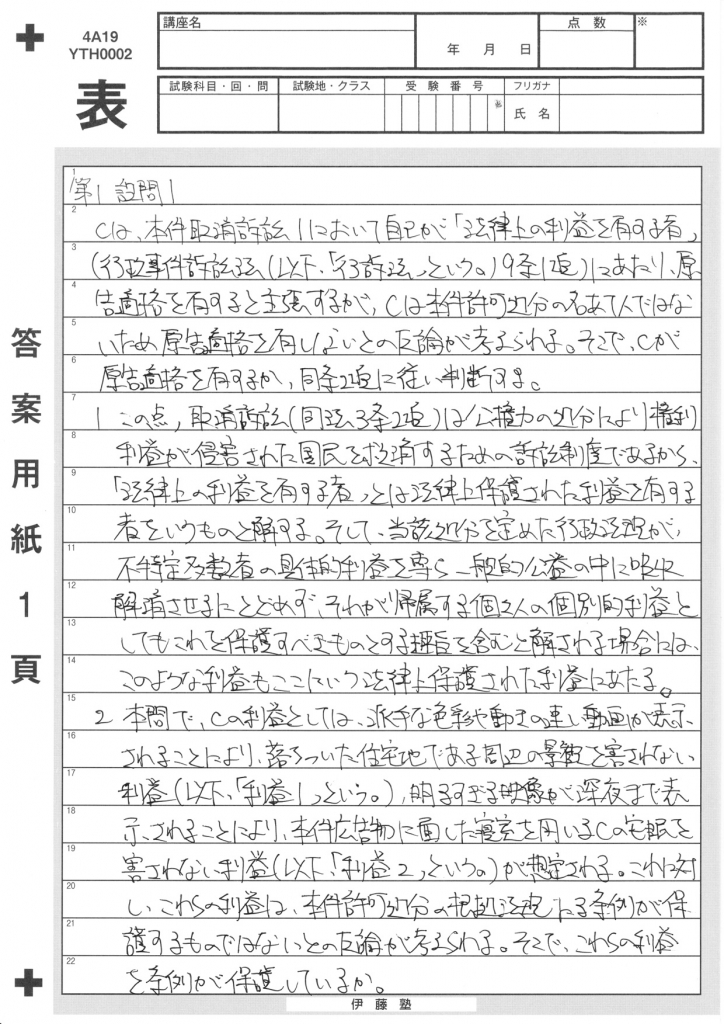 4A19
YTH0002
表
講座名
年 月 日
点 数
※
試験科目・回・問
試験地・クラス
受 験 番 号
フリガナ
氏 名
答案用紙1頁
1
第1 設問1
2
Cは、本件取消訴訟1において自己が「法律上の利益を有する者」
3
(行政事件訴訟法(以下、「行訴法」という。)9条1項)にあたり、原
4
告適格を有すると主張するが、Cは本件許可処分の名あて人ではな
5
いため原告適格を有しないとの反論が考えられる。そこで、Cが
6
原告適格を有するか、同条2項に従い判断する。
7
1 この点、取消訴訟(同法3条2項)は公権力の処分により権利
8
利益が侵害された国民を救済するための訴訟制度であるから、
9
「法律上の利益を有する者」とは法律上保護された利益を有する
10
者をいうものと解する。そして、当該処分を定めた行政法規が、
11
不特定多数者の具体的利益を専ら一般的公益の中に吸収
12
解消させるにとどめず、それが帰属する個々人の個別的利益と
13
してもこれを保護すべきものとする趣旨を含むと解される場合には、
14
このような利益もここにいう法律上保護された利益にあたる。
15
2 本問で、Cの利益としては、派手な色彩や動きの速い動画が表示
16
されることにより、落ちついた住宅地である周辺の景観を害されない
17
利益(以下、「利益1」という。)、明るすぎる映像が深夜まで表
18
示されることにより、本件広告物に面した寝室を用いるCの安眠を
19
害されない利益(以下、「利益2」という。)が想定される。これに対
20
し、これらの利益は、本件許可処分の根拠法規たる条例が保
21
護するものではないとの反論が考えられる。そこで、これらの利益
22
を条例が保護しているか。
伊藤塾